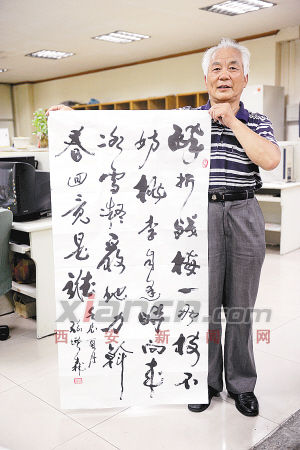 醉折残梅一两枝不
妨桃李自逢时向来
冰雪凝严地力斡
春回竟是谁
西安新闻网